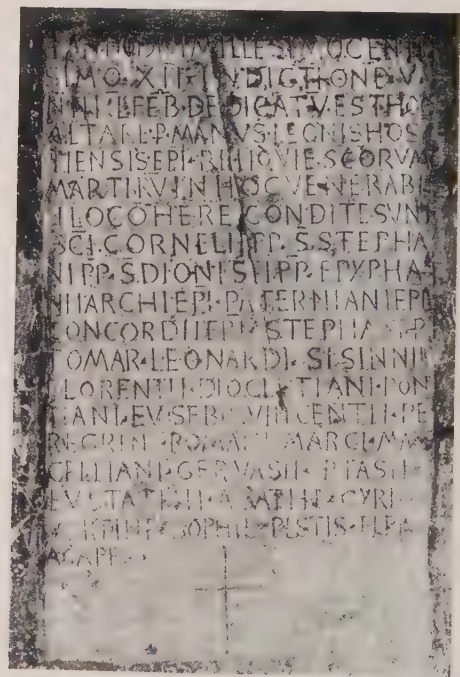 ANNO DNI MILLESIMO CENT
SIMO XII INDICTIONE V
LFEB DEDICATVESTHO
ALTAREP MANVS LEONIS HOS
TIENSIS EPI RELIQVIE SCORVM
MARTIRV IN HOC VENERABI
LI LOCO HERE CONDITE SVNT
SCI CORNELII PP S STEPHA
NI PP S DIONISII PP EPYPHA
NII ARCHIEPI PATERNIANI EPI
CONCORDII EPI STEPHANI P
TOMAR LEONARDI SISINNII
FLORENTII DIOCLETIANI PON
TIANI EVSEBII VINCENTII PE
REGRINI ROMANI MARCI MAR
CELLIANI GERVASII PTASII
EVSTATHII AGATHE CYRI
SOPHIE PISTIS ELPIS
AGAPE